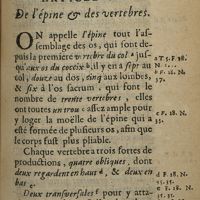 De l'épine & des vertebres.
ON appelle l'épine tout l'as-
semblage des os, qui sont de-
puis la premiere vertebre du col a jus-
qu'aux os du coccix b, il y en a sept au
col, douze au dos, cinq aux lombes,
& six à l'os sacrum, qui sont le
nombre de trente vertebres, elles
ont toutes un trou c assez ample pour
y loger la moëlle de l'épine qui a
est formée de plusieurs os, afin que
le corps fust plus pliable.
Chaque vertebre a trois sortes de
productions, quatre obliques, dont
deux regardent en haut d, & deux en
bas e.
Deux transversales f pour y atta-
a T. F. 18.
b F. 18. N.
37.
c F. 18.
N.
d F. 18.
N.
35.